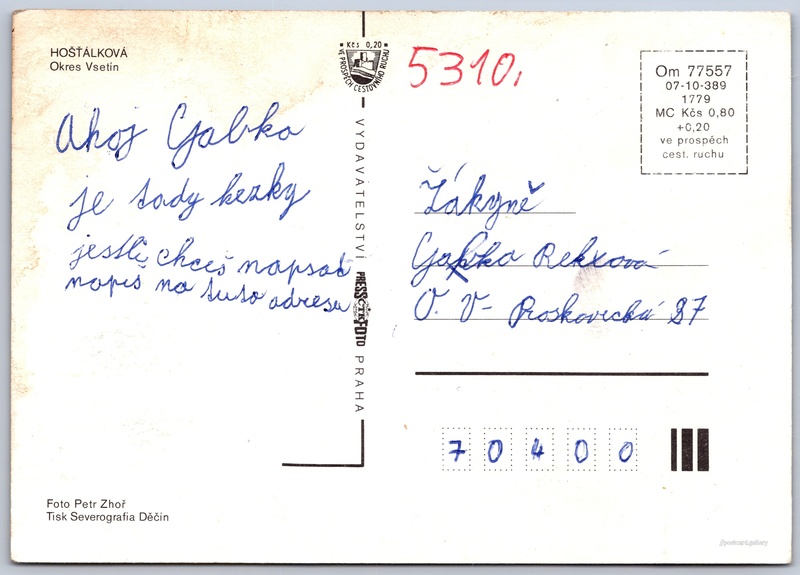 HOŠŤÁLKOVÁ
Okres Vsetín
Ahoj Gabko
je tady hezky
jestli chceš napsat
napiš na tuto adresu
Foto Petr Zhoř
Tisk Severografia Děčín
Kčs 0,20
VE PROSPĚCH CESTOVNÍHO RUCHU
VYDAVATELSTVÍ PRESSFOTO PRAHA
ČTK
5310,
Om 77557
07-10-389
1779
MC Kčs 0,80
+0,20
ve prospěch
cest. ruchu
Žákyně
Gabka Rekxová
O. V- Proskovická 37
70400